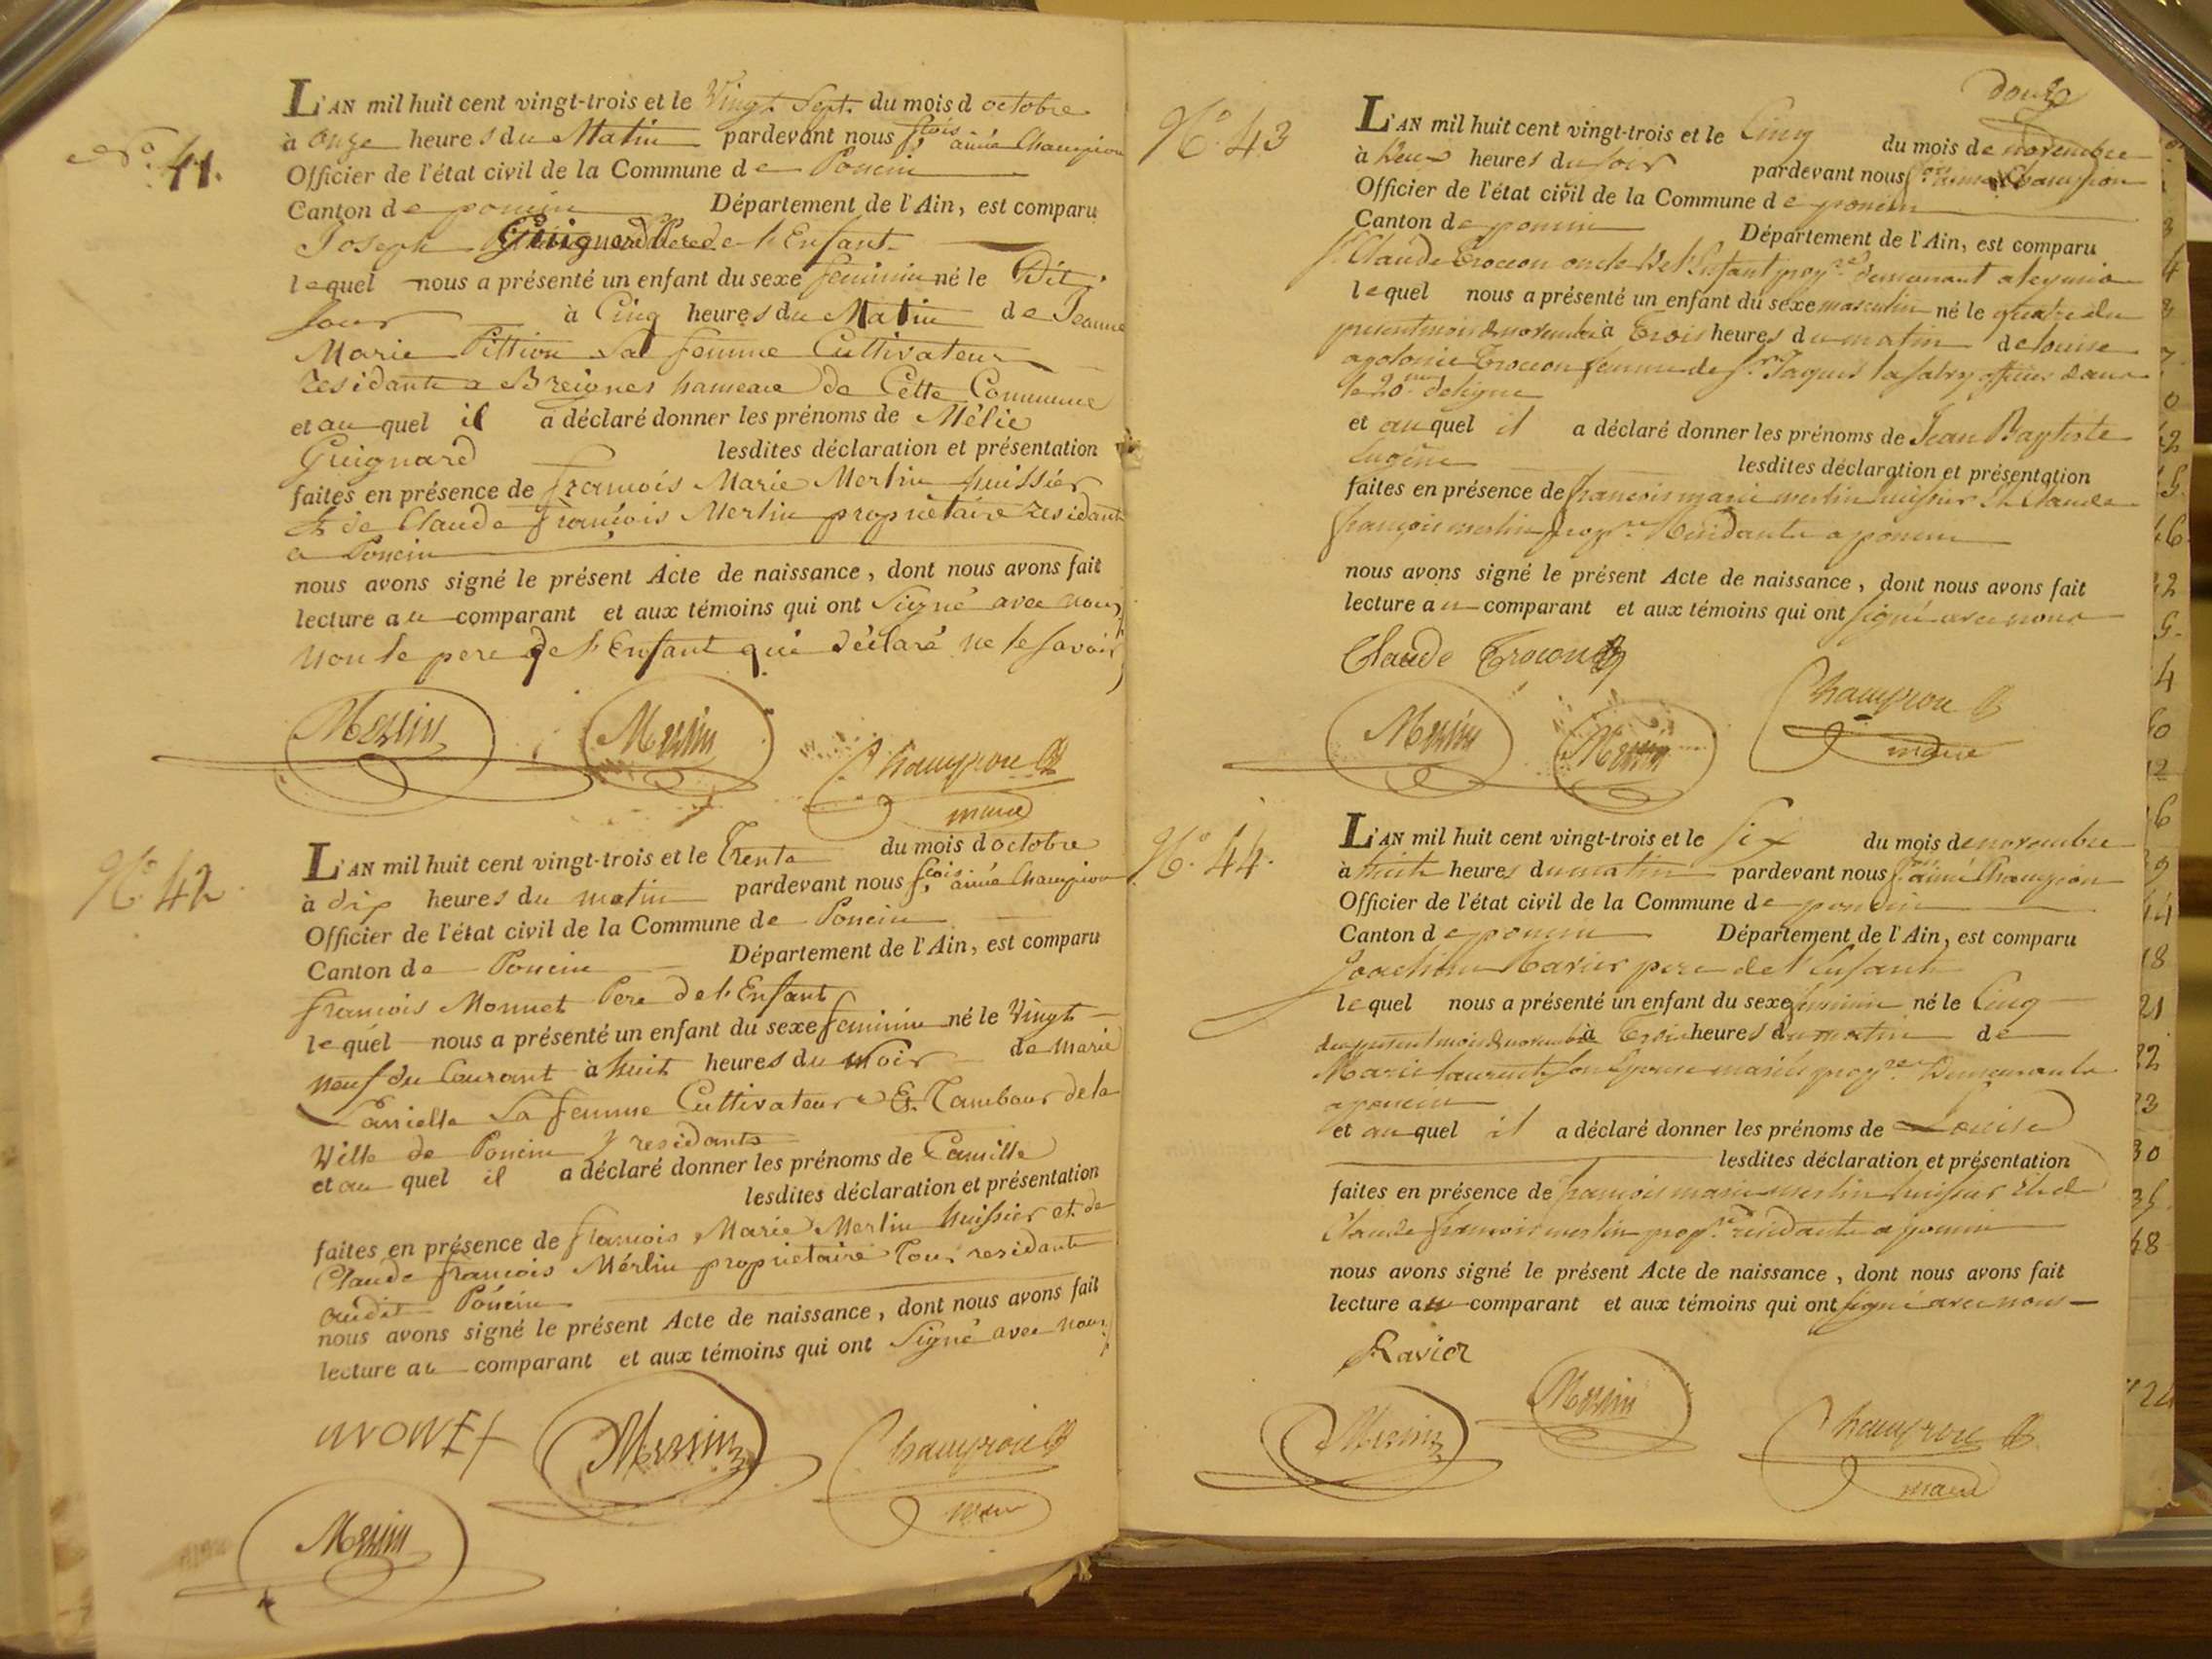 N.° 41.
L'AN mil huit cent vingt-trois et le Vingt Sept du mois d octobre
à onze heures du Matin pardevant nous fçois aimé Champion
Officier de l'état civil de la Commune de Poncin
Canton de poncin Département de l'Ain, est comparu
Joseph Guignard Pere de l'Enfant
lequel nous a présenté un enfant du sexe feminin né le Dit
Jour à Cinq heures du Matin de Jeanne
Marie Pittion Sa femme Cultivateur
residants a Breignes hameau de Cette Commune
et au quel il a déclaré donner les prénoms de Mélie
Guignard lesdites déclaration et présentation
faites en présence de françois Marie Merlin huissier
et de Claude françois Merlin propriétaire residants
a Poncin
nous avons signé le présent Acte de naissance, dont nous avons fait
lecture au comparant et aux témoins qui ont Signé avec nous
non le pere de l'Enfant qui a déclaré ne le savoir
Merlin Merlin Champion
maire
N.° 42
L'AN mil huit cent vingt-trois et le Trente du mois d octobre
à dix heures du matin pardevant nous fçois aimé Champion
Officier de l'état civil de la Commune de Poncin
Canton de Poncin Département de l'Ain, est comparu
françois Monnet Pere de l'Enfant
lequel nous a présenté un enfant du sexe feminin né le Vingt
neuf du Courant à huit heures du soir de Marie
Sa femme Cultivateur Et Tambour de la
Ville de Poncin y residants
et au quel il a déclaré donner les prénoms de Camille
lesdites déclaration et présentation
faites en présence de françois Marie Merlin huissier et de
Claude françois Mérlin propriétaire Tous residants
audit Poncin
nous avons signé le présent Acte de naissance, dont nous avons fait
lecture au comparant et aux témoins qui ont Signé avec nous
MONET Merlin Champion
maire
Merlin
douze
N.° 43
L'AN mil huit cent vingt-trois et le Cinq du mois de novembre
à deux heures du soir pardevant nous fçois aimé Champion
Officier de l'état civil de la Commune de poncin
Canton de poncin Département de l'Ain, est comparu
Sr Claude Trocon oncle de l'Enfant propre demeurant a
lequel nous a présenté un enfant du sexe masculin né le quatre du
present mois de novembre à Trois heures du matin de louise
apolonie Trocon femme de Sr Jaques officier dans
le 20me de ligne
et au quel il a déclaré donner les prénoms de Jean Baptiste
Eugène lesdites déclaration et présentation
faites en présence de francois marie merlin huissier et Claude
françois merlin propre Residants a poncin
nous avons signé le présent Acte de naissance, dont nous avons fait
lecture au comparant et aux témoins qui ont signé avec nous
Claude Trocon
Merlin Merlin Champion
maire
N.° 44.
L'AN mil huit cent vingt-trois et le Six du mois de novembre
à huit heures du matin pardevant nous fçois aimé Champion
Officier de l'état civil de la Commune de poncin
Canton de poncin Département de l'Ain, est comparu
Joachim Ravier pere de l'Enfant
lequel nous a présenté un enfant du sexe feminin né le Cinq
du present mois de novembre à Trois heures du matin de
Marie laurent son Epouse mariés propre Demeurants
a poncin
et au quel il a déclaré donner les prénoms de Louise
lesdites déclaration et présentation
faites en présence de francois marie merlin huissier et de
Claude francois merlin propre residants a poncin
nous avons signé le présent Acte de naissance, dont nous avons fait
lecture au comparant et aux témoins qui ont signé avec nous
Ravier
Merlin Merlin Champion
maire